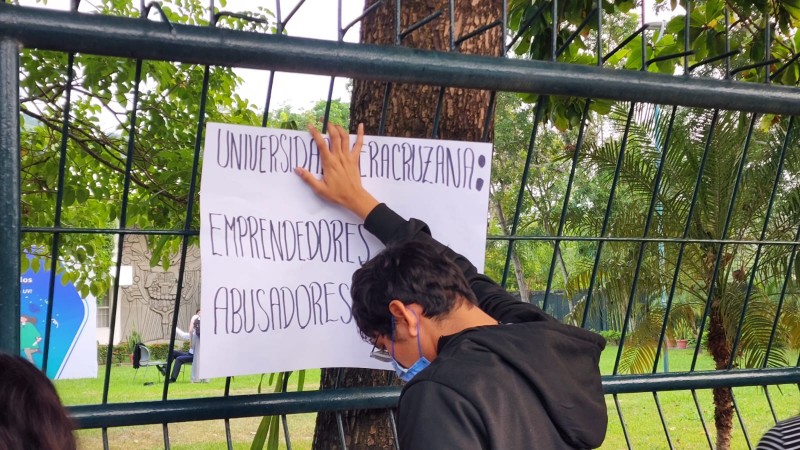 UNIVERSIDAD VERACRUZANA:
EMPRENDEDORES
ABUSADORES